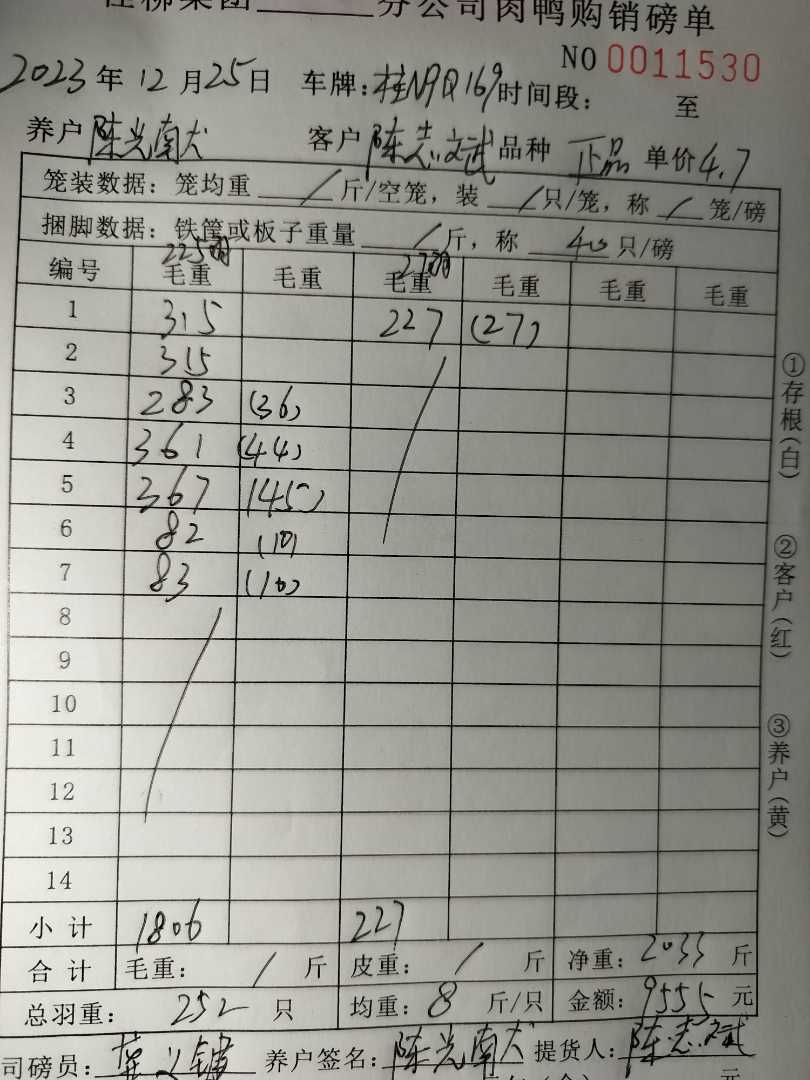 集团______分公司肉鸭购销磅单
NO 0011530
2023年12月25日 车牌:桂N9Q169 时间段: 至
养户 陈光南大 客户 陈志斌 品种 正品 单价4.7
笼装数据: 笼均重 / 斤/空笼, 装 / 只/笼, 称 / 笼/磅
捆脚数据: 铁筐或板子重量 / 斤, 称 40 只/磅
225 27
编号 毛重 毛重 毛重 毛重 毛重 毛重
1 315 227 (27)
2 315
3 283 (36)
4 361 (44)
5 367 (45)
6 82 (10)
7 83 (10)
8
9
10
11
12
13
14
小计 1806 227
合计 毛重: / 斤 皮重: / 斤 净重: 2033 斤
总羽重: 252 只 均重: 8 斤/只 金额: 9555 元
司磅员: 养户签名: 陈光南大 提货人: 陈志斌
元
①存根(白)
②客户(红)
③养户(黄)